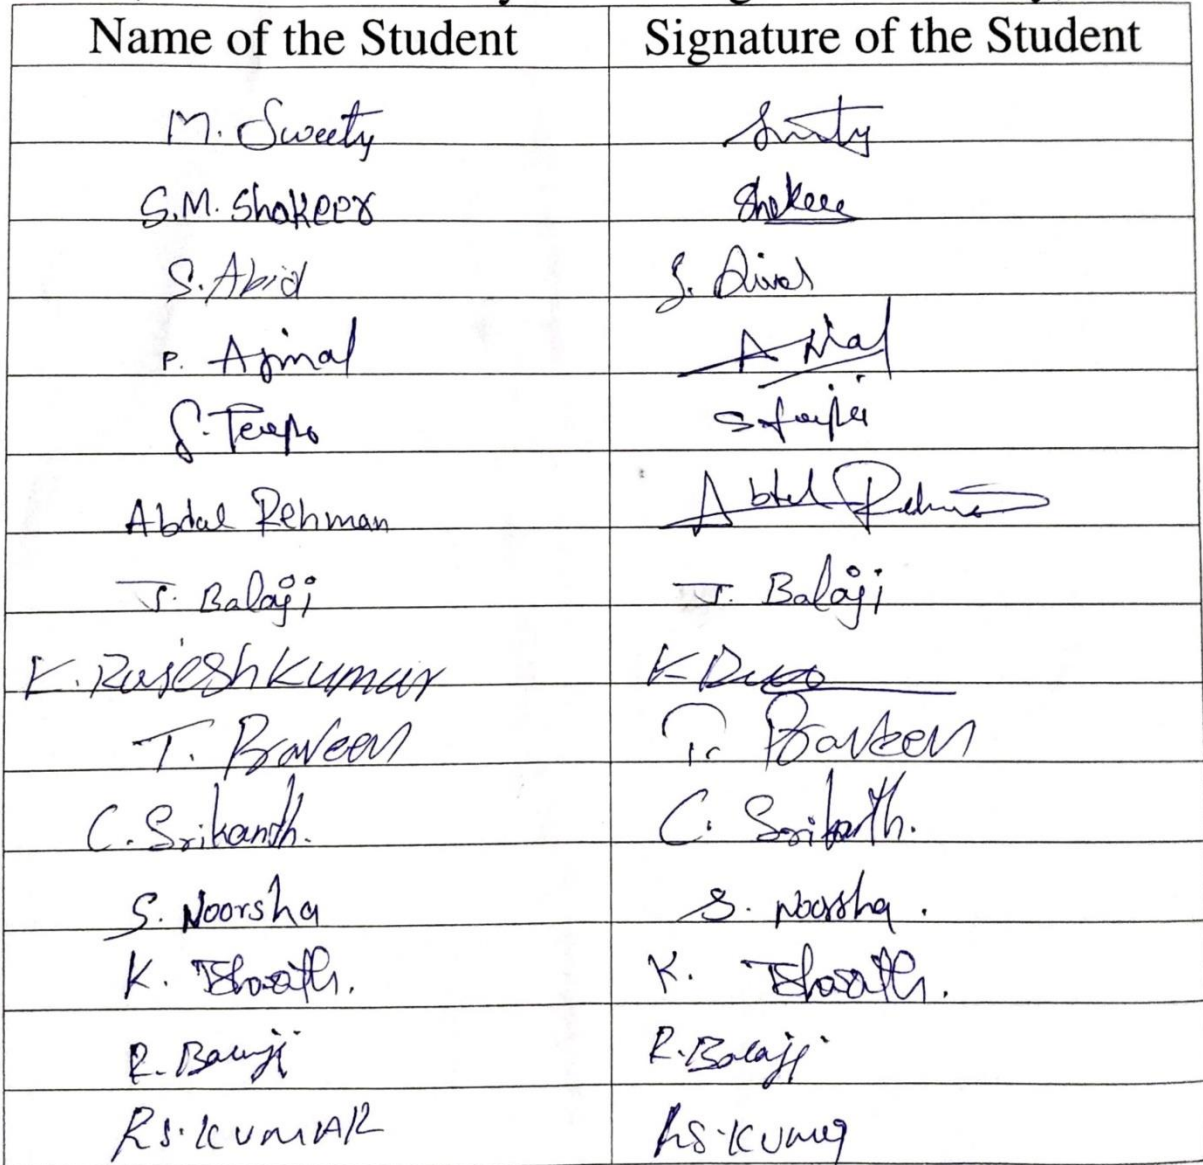 Name of the Student Signature of the Student
M. Sweety Swty
S.M. Shakeer Shakeee
S. Abid S.
P. Ajmal Ajmal
S.
Abdul Rehman Abdul Rehman
J. Balaji J. Balaji
K. Rajesh Kumar K
T. Praveen T. Praveen
C. Srikanth. C. Srikanth.
S. Noorsha S. Noorsha.
K. Bharath. K. Bharath.
R. Balaji R. Balaji
RS. KUMAR RS. KUMAR